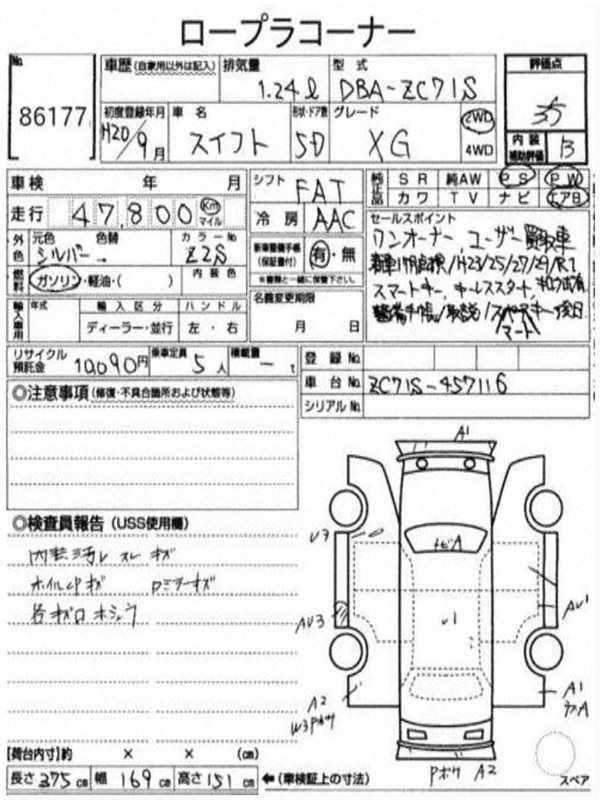 ロープラコーナー
No.
86177
車歴(自家用以外は記入)
排気量
1.24ℓ
型式
DBA-ZC71S
評価点
3.5
初度登録年月
H20/9月
車名
スイフト
形状・ドア数
5D
グレード
XG
2WD
4WD
内装
補助評価
B
車検 年 月
シフト
FAT
純正品
SR 純AW PS PW
カワ TV ナビ エアB
走行 47,800 Km マイル
冷房
AAC
セールスポイント
ワンオーナー、ユーザー買取車
H23/25/27/29/R1
スマートキー、キーレススタート
外色
元色 色替
シルバー
カラーNo
Z2S
新車整備手帳
(保証書付)
有・無
※書類と一緒に保管下さい。
燃料
ガソリン・軽油・( )
内装色
輸入車用
年式
輸入区分
ハンドル
ディーラー・並行
左・右
名義変更期限
月 日
リサイクル預託金
10,090円
乗車定員
5人
積載量
- t
登録No.
車台No.
ZC71S-457116
シリアルNo.
◎注意事項(修復・不具合箇所および状態等)
◎検査員報告(USS使用欄)
内装汚レ スレ キズ
ホイルCPキズ
ロミラーキズ
各キズロホシュウ
A1
U3
トビA
U1
AU3
AU1
A2
W3Pボケ
A1
Pボケ A2
スペア
【荷台内寸】約 × × (cm)
長さ 375cm 幅 169cm 高さ 151cm ←(車検証上の寸法)